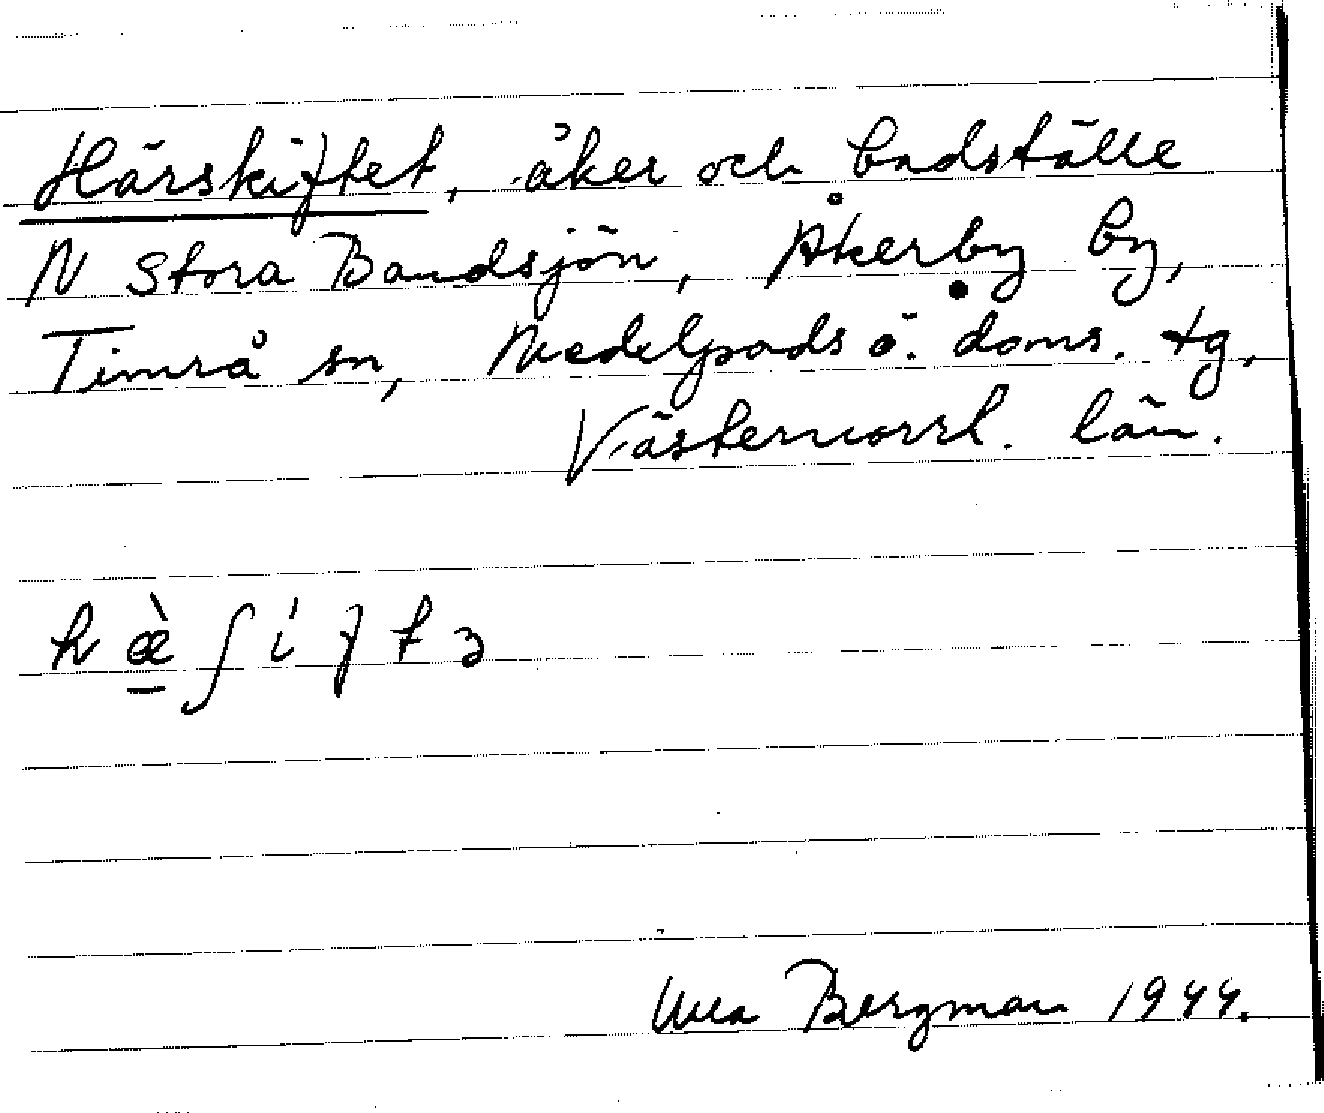 Härskiftet, åker och badställe
N Stora Bandsjön, Åkerby by,
Timrå sn, Medelpads ö. doms. tg,
Västernorrl. län.
hæ̀ʃiftə
Ulla Bergman 1944.